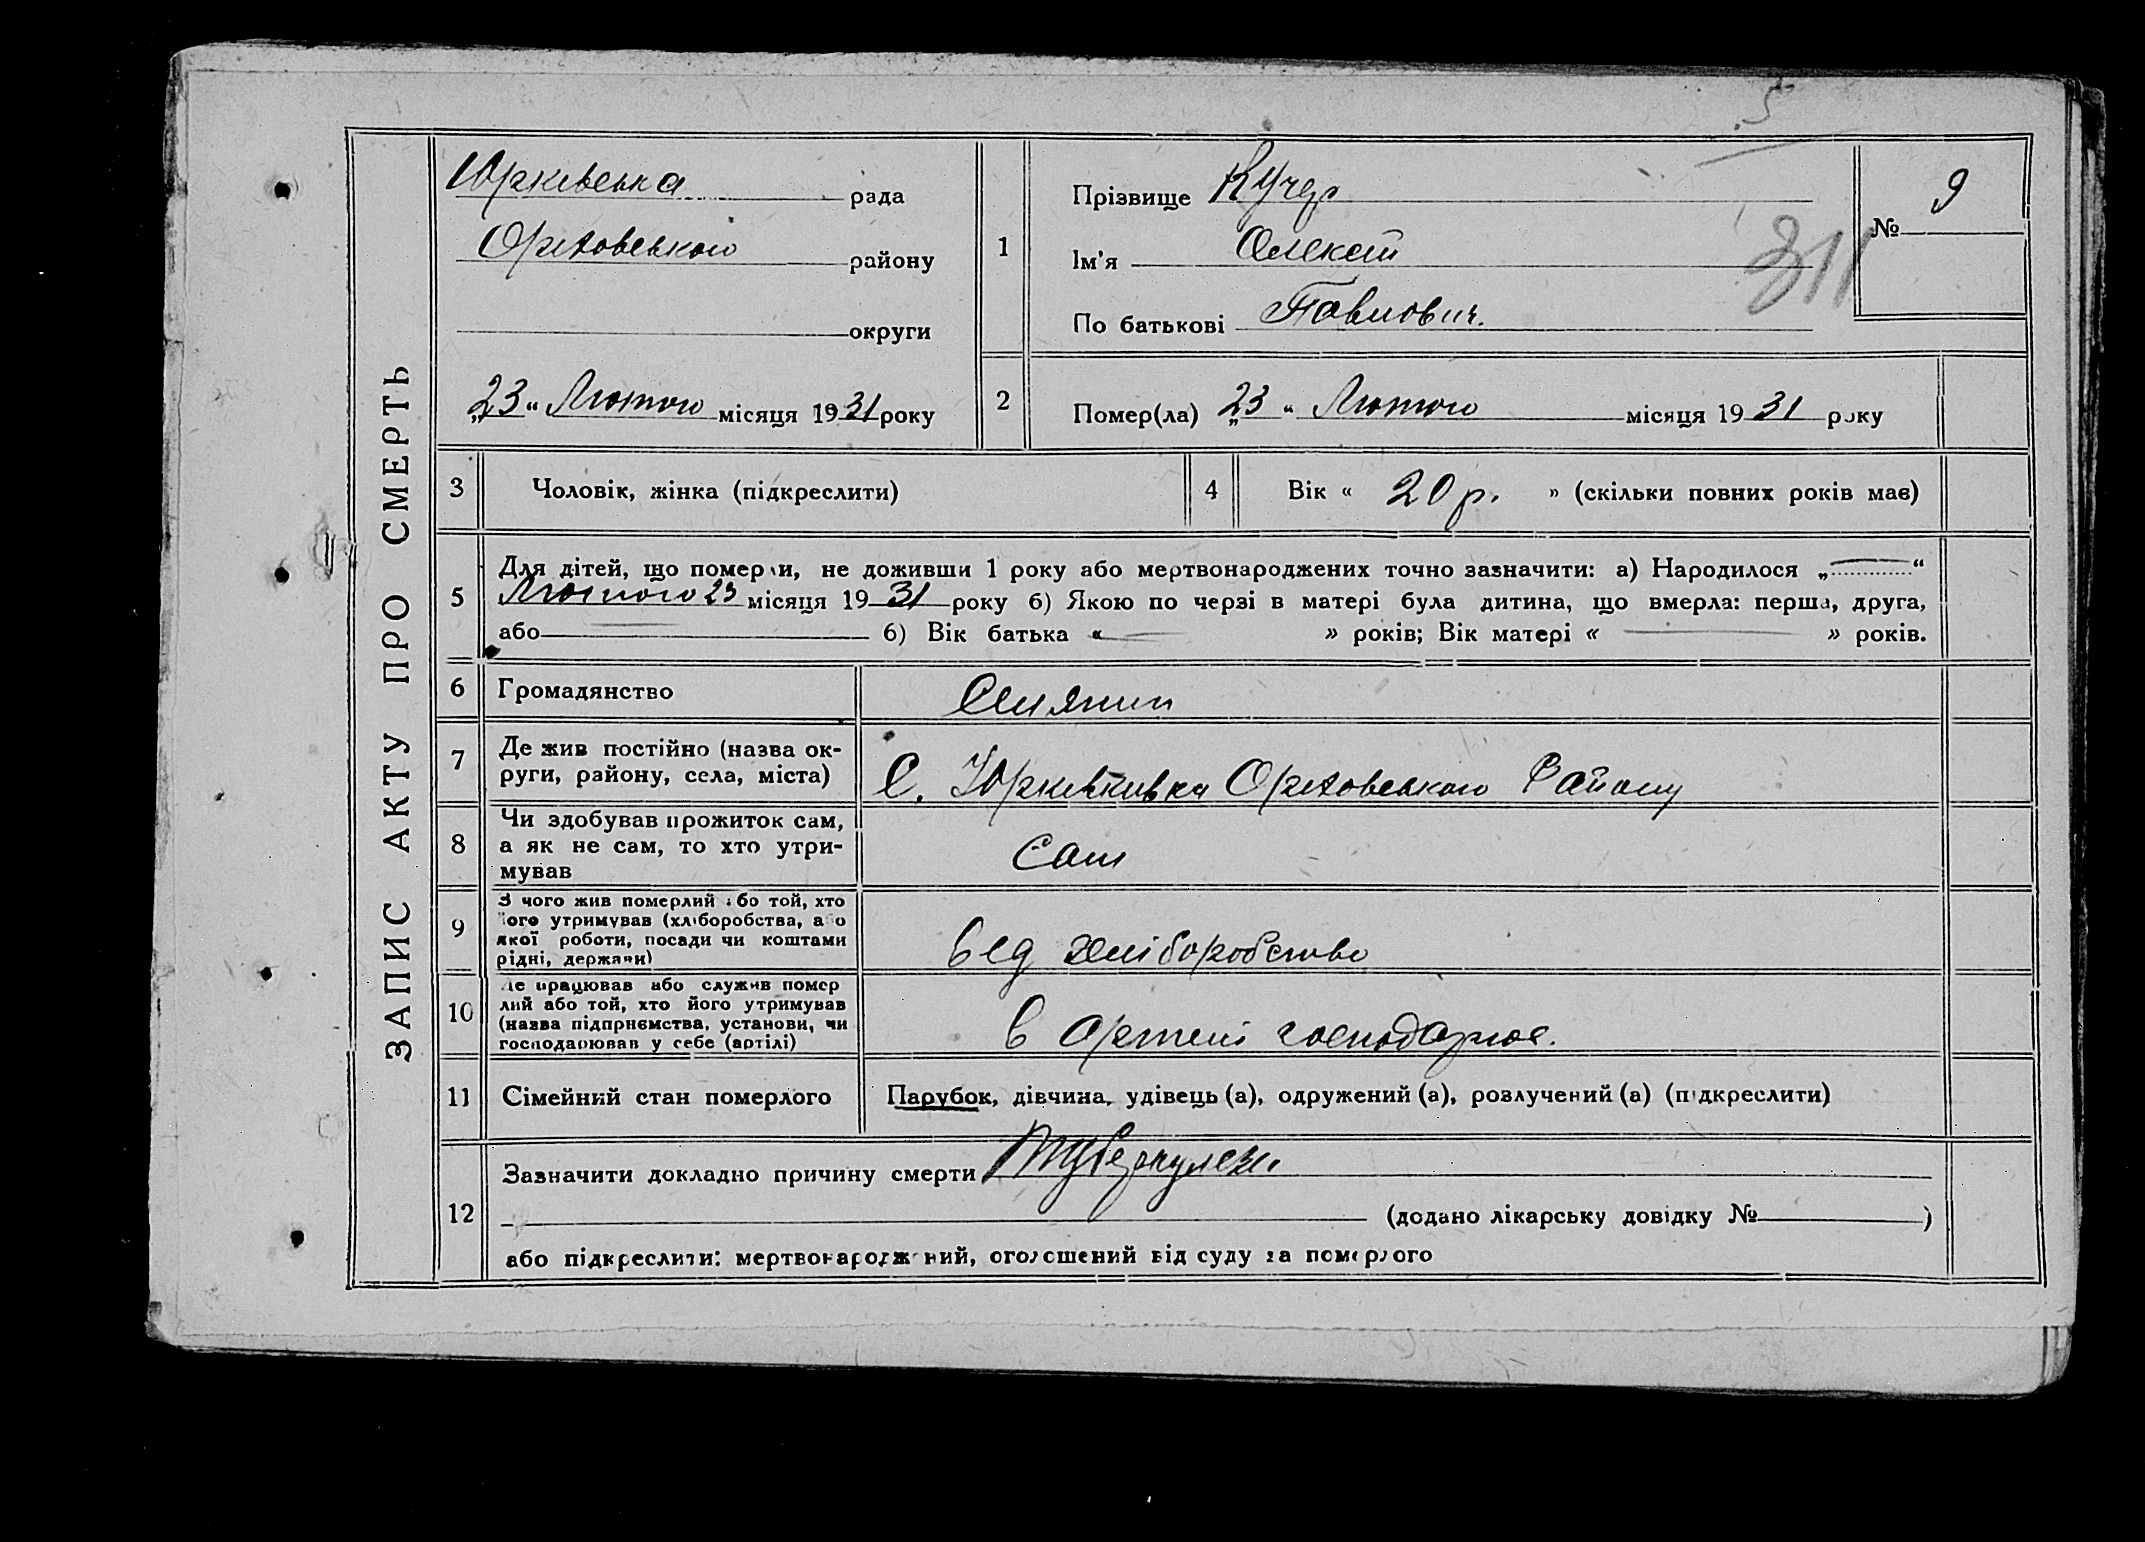 5
ЗАПИС АКТУ ПРО СМЕРТЬ
Юрківська рада
Оріховського району
округи
„23“ Лютого місяця 1931 року
1
Прізвище Кучер
Ім'я Олексій
По батькові Павлович.
№ 9
311
2
Помер(ла) „23“ Лютого місяця 1931 року
3
Чоловік, жінка (підкреслити)
4
Вік « 20 р. » (скільки повних років має)
5
Для дітей, що померли, не доживши 1 року або мертвонароджених точно зазначити: а) Народилося „ “
Лютого 23 місяця 1931 року б) Якою по черзі в матері була дитина, що вмерла: перша, друга,
або б) Вік батька « » років; Вік матері « » років.
6
Громадянство
Селянин
7
Де жив постійно (назва ок-
руги, району, села, міста)
С. Юрківка Оріховського Району
8
Чи здобував прожиток сам,
а як не сам, то хто утри-
мував
Сам
9
З чого жив померлий або той, хто
його утримував (хліборобства, або
якої роботи, посади чи коштами
рідні, держави)
від хліборобства
10
Де працював або служив помер
лий або той, хто його утримував
(назва підприємства, установи, чи
господарював у себе (артілі)
в артелі господарює.
11
Сімейний стан померлого
Парубок, дівчина, удівець (а), одружений (а), розлучений (а) (підкреслити)
12
Зазначити докладно причину смерти Туберкульоз
(додано лікарську довідку № )
або підкреслити: мертвонароджений, оголошений від суду за померлого